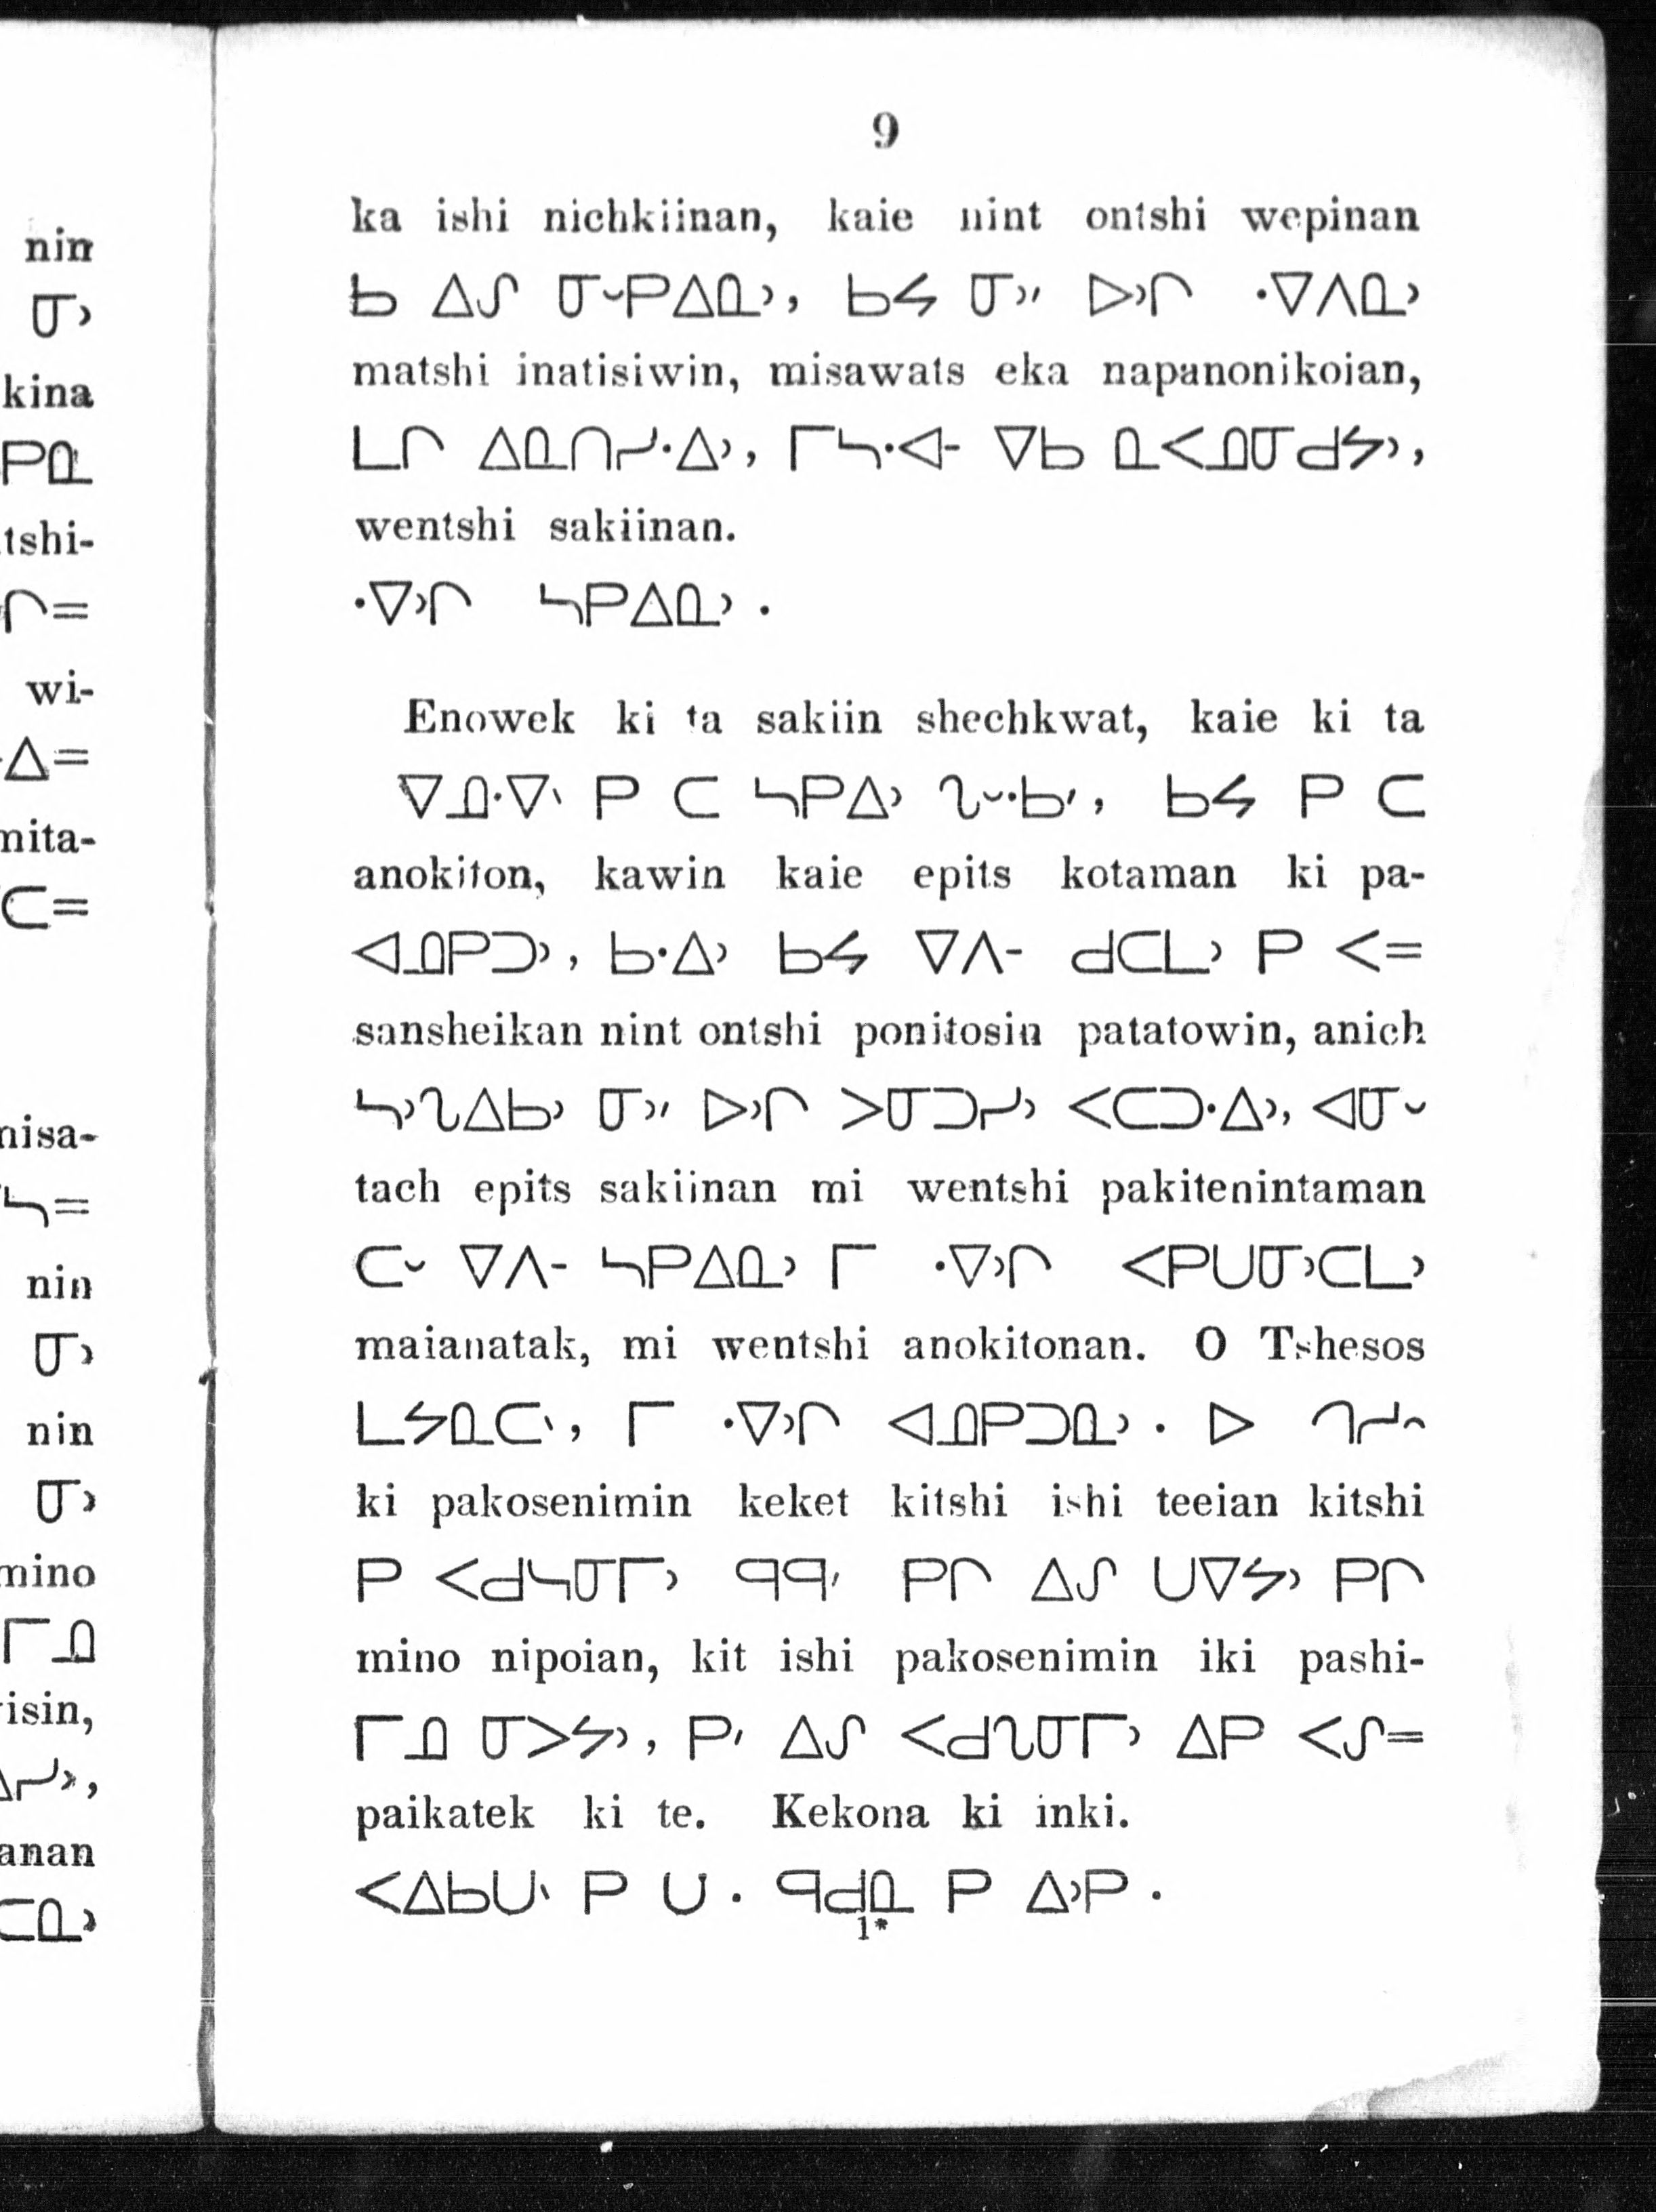 nin
ᓂᐣ
kina
ᑭᓇ
tshi-
ᒋ=
wi-
ᐎ=
mita-
ᑕ=
misa-
ᓴ=
nin
ᓂᐣ
nin
ᓂᐣ
mino
ᒥᓄ
isin,
ᐃᓯᐣ,
anan
ᑕᓇᐣ
9
ka ishi nichkiinan, kaie nint ontshi wepinan
ᑲ ᐃᔑ ᓂᐡᑭᐃᓇᐣ, ᑲᔦ ᓂᐣᐟ ᐅᐣᒋ ᐌᐱᓇᐣ
matshi inatisiwin, misawats eka napanonikoian,
ᒪᒋ ᐃᓇᑎᓯᐎᐣ, ᒥᓴᐗᐨ ᐁᑲ ᓇᐸᓄᓂᑯᔭᐣ,
wentshi sakiinan.
ᐌᐣᒋ ᓴᑭᐃᓇᐣ.
Enowek ki ta sakiin shechkwat, kaie ki ta
ᐁᓄᐌᐠ ᑭ ᑕ ᓴᑭᐃᐣ ᔐᐡᑾᐟ, ᑲᔦ ᑭ ᑕ
anokiton, kawin kaie epits kotaman ki pa-
ᐊᓄᑭᑐᐣ, ᑲᐎᐣ ᑲᔦ ᐁᐱᐨ ᑯᑕᒪᐣ ᑭ ᐸ=
sansheikan nint ontshi ponitosin patatowin, anich
ᓴᐣᔐᐃᑲᐣ ᓂᐣᐟ ᐅᐣᒋ ᐳᓂᑐᓯᐣ ᐸᑕᑐᐎᐣ, ᐊᓂᐡ
tach epits sakiinan mi wentshi pakitenintaman
ᑕᐡ ᐁᐱᐨ ᓴᑭᐃᓇᐣ ᒥ ᐌᐣᒋ ᐸᑭᑌᓂᐣᑕᒪᐣ
maianatak, mi wentshi anokitonan. O Tshesos
ᒪᔭᓇᑕᐠ, ᒥ ᐌᐣᒋ ᐊᓄᑭᑐᓇᐣ. ᐅ ᒉᓯᐢ
ki pakosenimin keket kitshi ishi teeian kitshi
ᑭ ᐸᑯᓴᓂᒥᐣ ᑫᑫᐟ ᑭᒋ ᐃᔑ ᑌᐁᔭᐣ ᑭᒋ
mino nipoian, kit ishi pakosenimin iki pashi-
ᒥᓄ ᓂᐳᔭᐣ, ᑭᐟ ᐃᔑ ᐸᑯᔐᓂᒥᐣ ᐃᑭ ᐸᔑ=
paikatek ki te. Kekona ki inki.
ᐸᐃᑲᑌᐠ ᑭ ᑌ. ᑫᑯᓇ ᑭ ᐃᐣᑭ.
1*